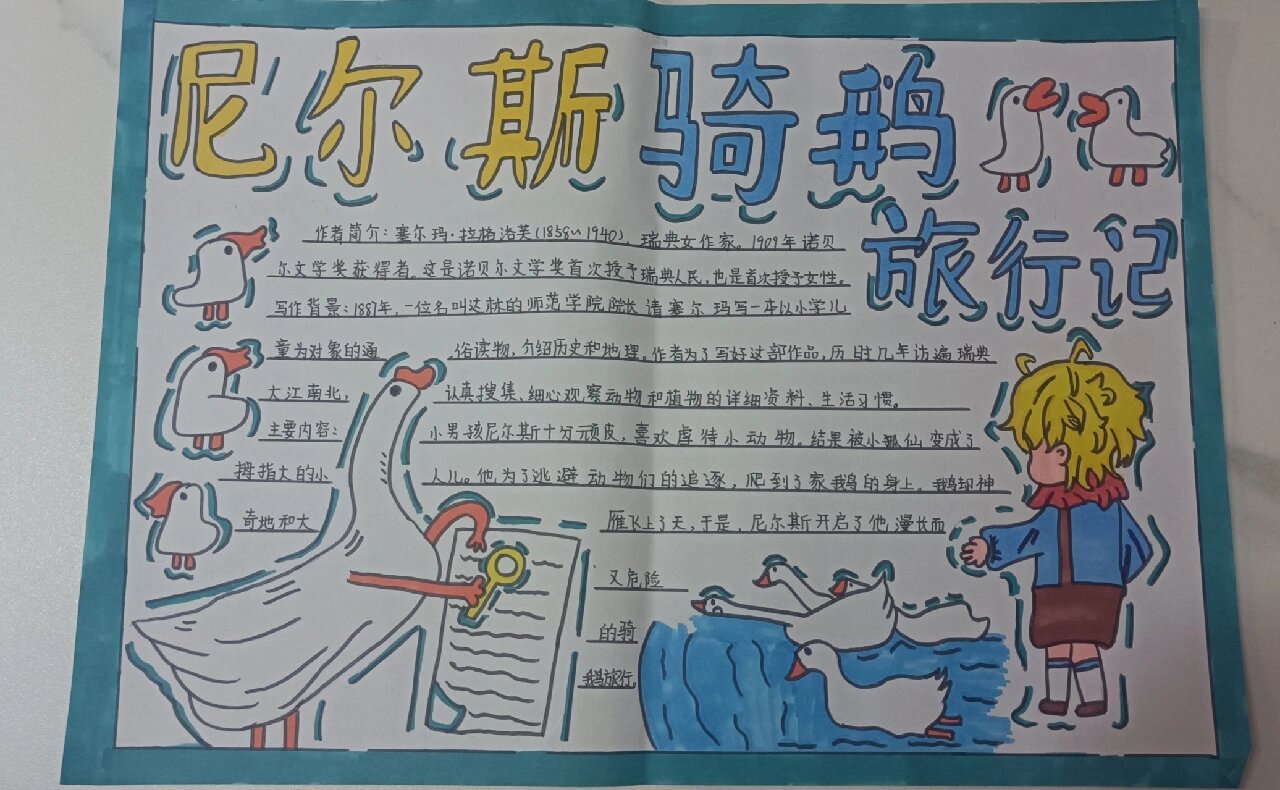 尼尔斯骑鹅
旅行记
作者简介：塞尔玛·拉格洛芙(1858~1940)、瑞典女作家。1909年诺贝
尔文学奖获得者。这是诺贝尔文学奖首次授予瑞典人民，也是首次授予女性。
写作背景：1887年，一位名叫达林的师范学院院长请塞尔玛写一本以小学儿
童为对象的通俗读物，介绍历史和地理。作者为了写好这部作品，历时几年访遍瑞典
大江南北，认真搜集、细心观察动物和植物的详细资料、生活习惯。
主要内容：小男孩尼尔斯十分顽皮，喜欢虐待小动物。结果被小狐仙变成了
拇指大的小人儿。他为了逃避动物们的追逐，爬到了家鹅的身上。我鹅却神
奇地和大雁飞上了天，于是，尼尔斯开启了他漫长而
又危险
的骑
鹅旅行。